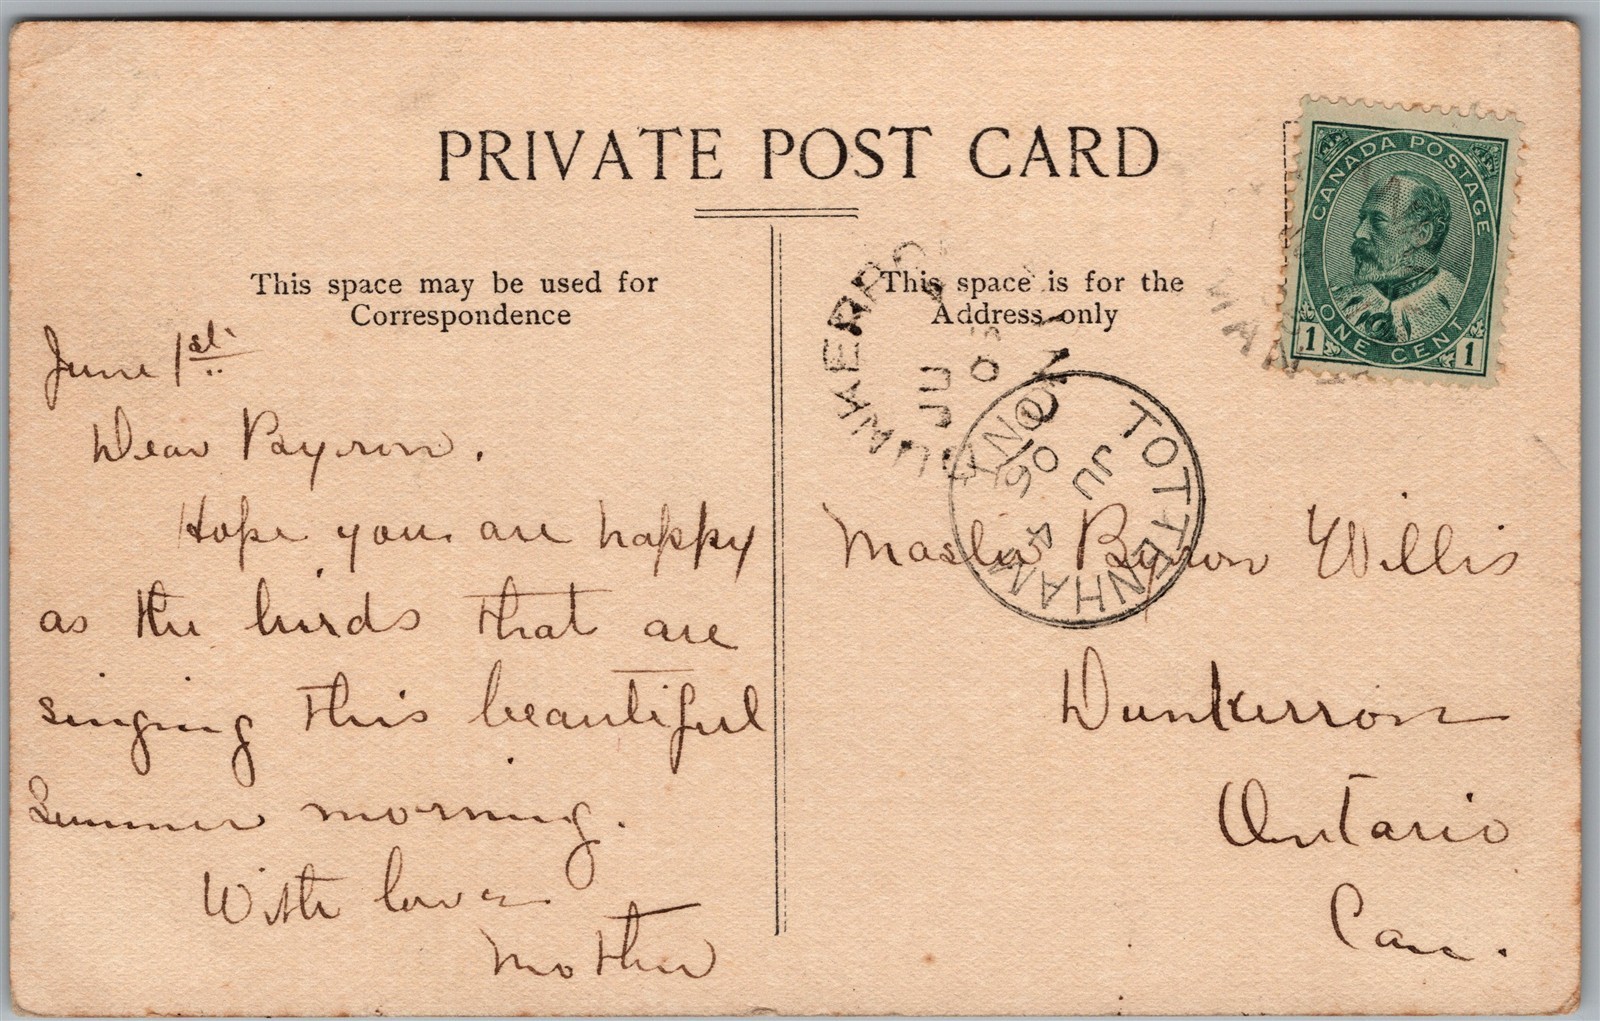 PRIVATE POST CARD
This space may be used for
Correspondence
This space is for the
Address only
CANADA POSTAGE
1 ONE CENT 1
June 1st
Dear Bayron.
Hope you are happy
as the birds that are
singing this beautiful
Summer morning.
With love
Mother
TOTTENHAM
JU 4
06
ONT
JU
Master Byron Willis
Dunkerron
Ontario
Can.